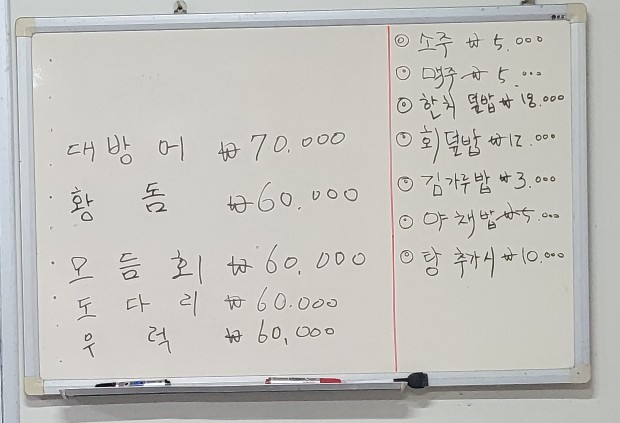 대방어 ₩70.000
황돔 ₩60.000
모듬회 ₩60,000
도다리 ₩60.000
우럭 ₩60,000
◎ 소주 ₩5.000
◎ 맥주 ₩5.000
◎ 한치 덮밥 ₩18.000
◎ 회덮밥 ₩12.000
◎ 김가루밥 ₩3.000
◎ 야채밥 ₩5.000
◎ 탕 추가시 ₩10.000